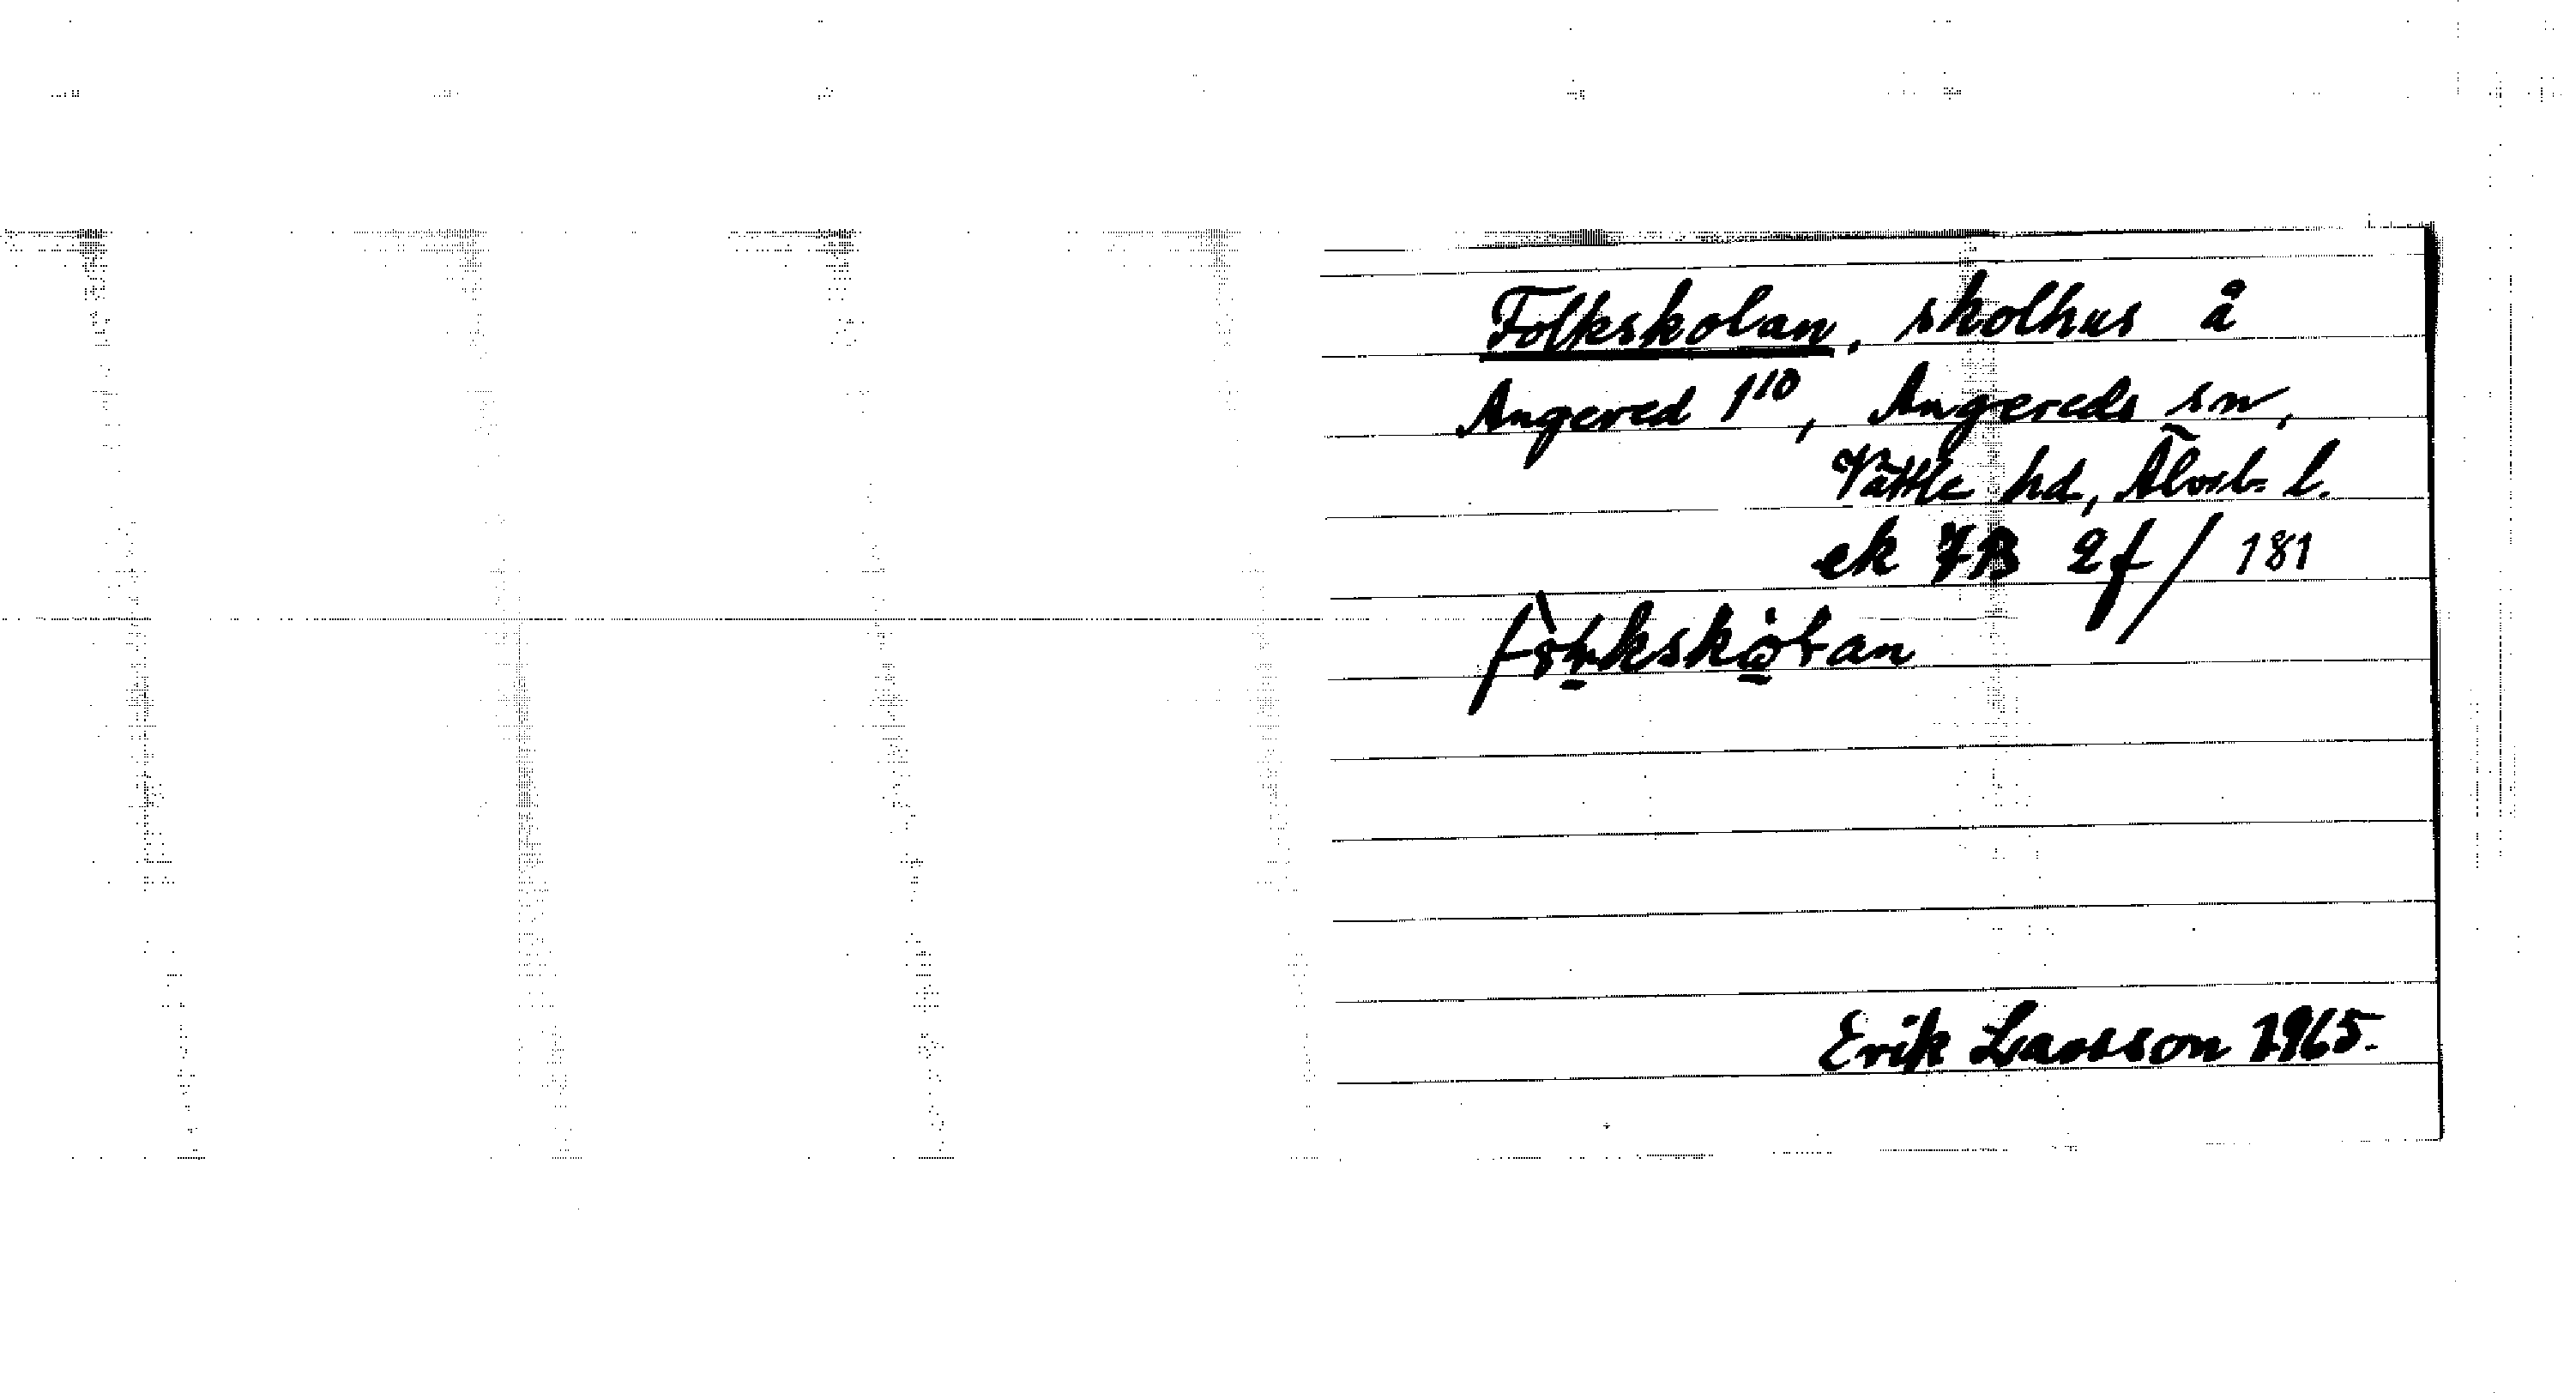 Folkskolan, skolhus å
Angered 1¹⁰, Angereds sn,
Vättle hd, Älvsb. l.
ek 7B 2f / 181
Erik Larsson 1965.